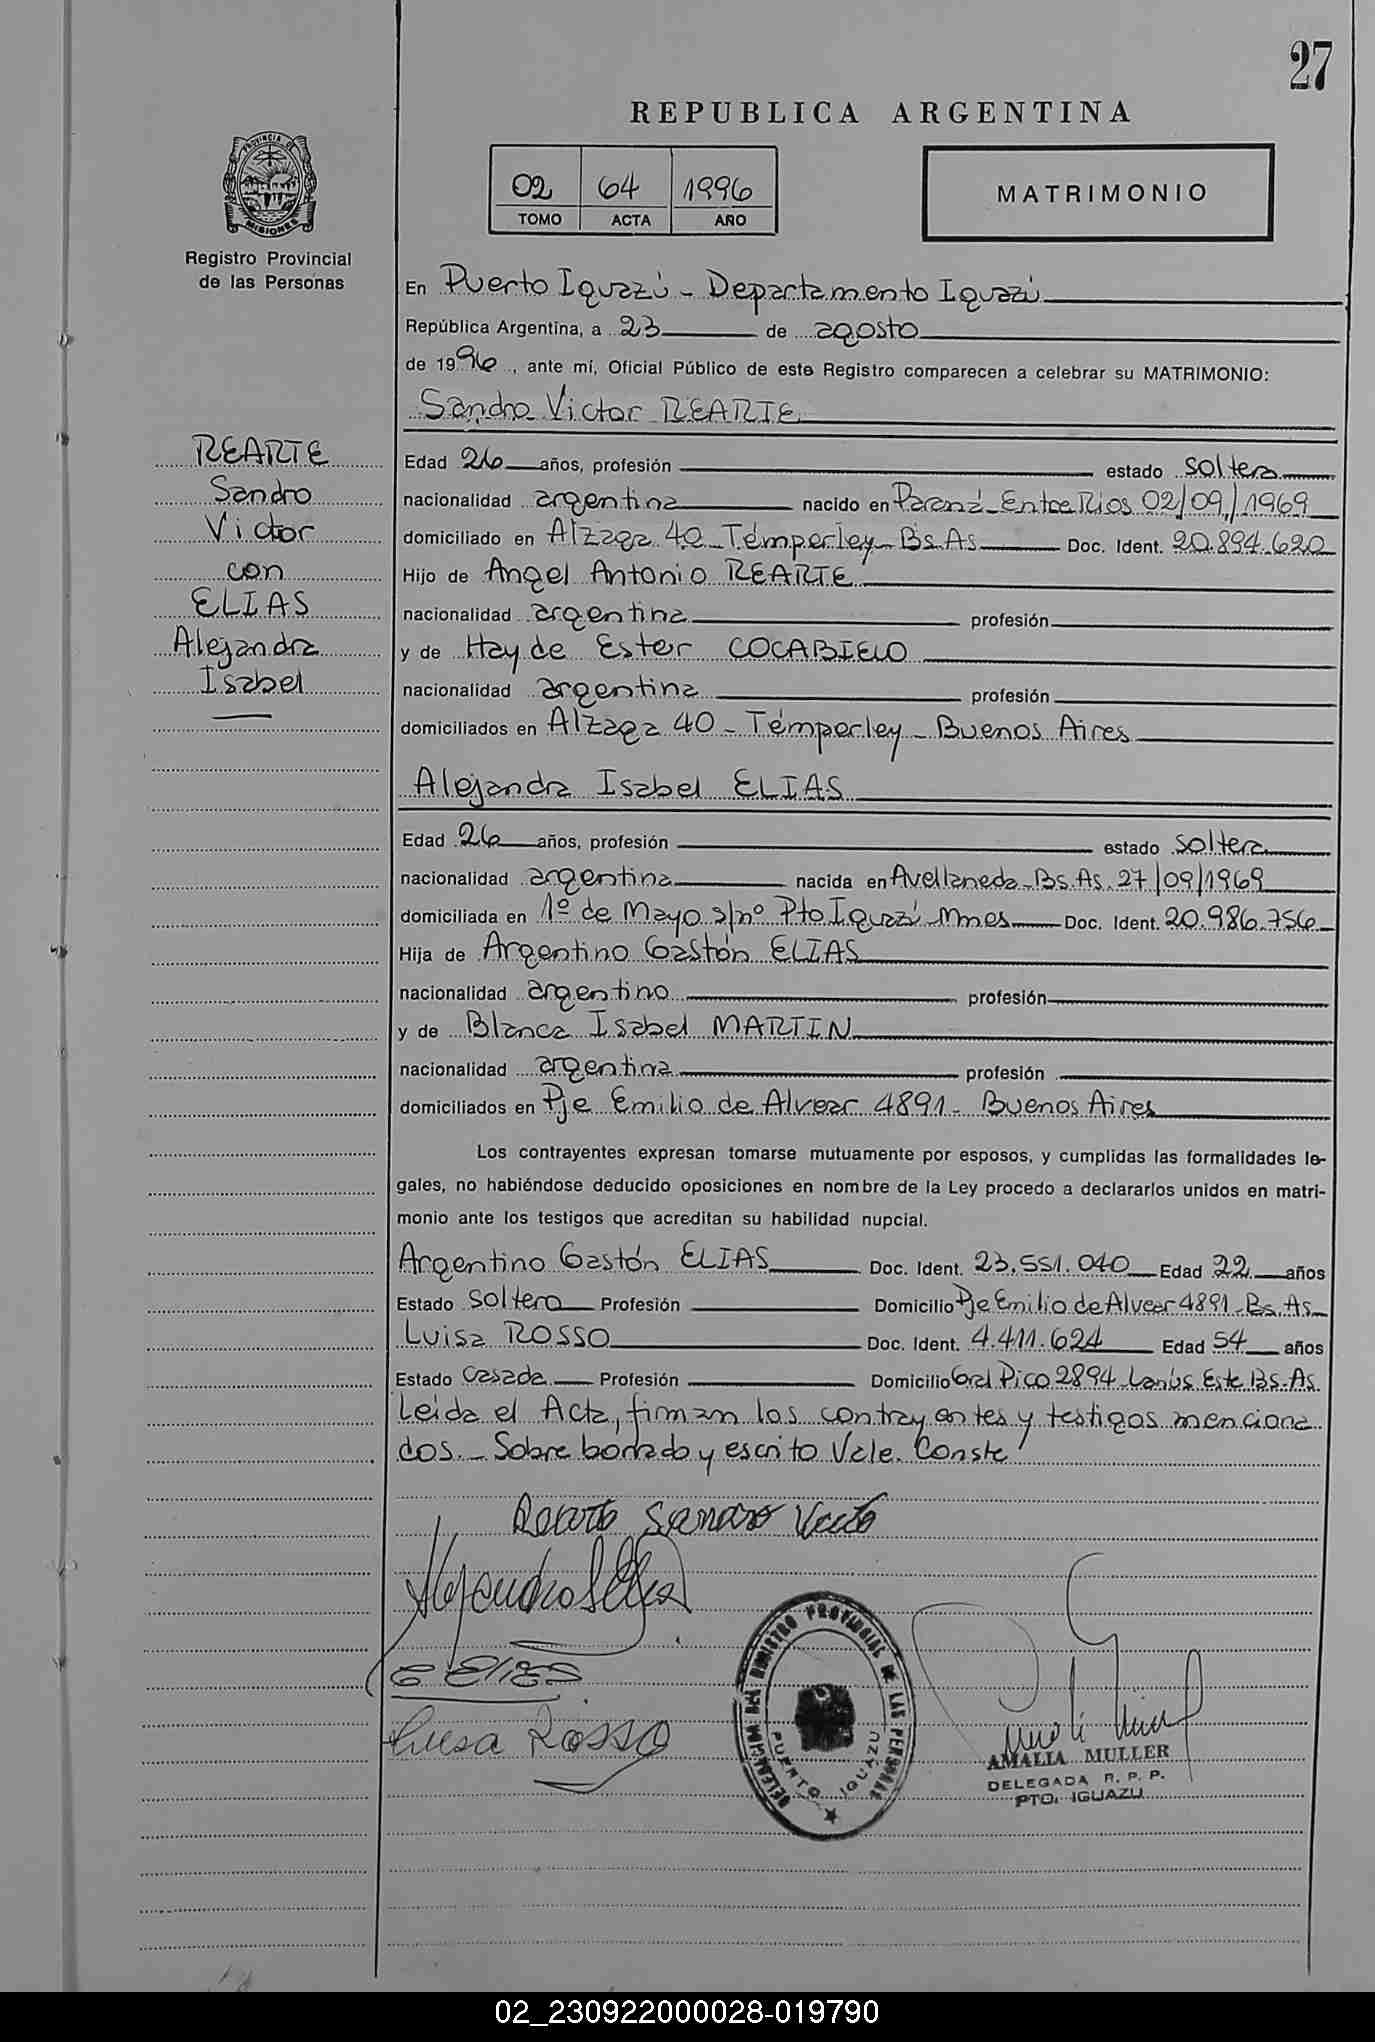 27
REPUBLICA ARGENTINA
02 64 1996
TOMO ACTA AÑO
MATRIMONIO
PROVINCIA DE
MISIONES
Registro Provincial
de las Personas
En Puerto Iguazú - Departamento Iguazú
República Argentina, a 23 de agosto
de 1996, ante mí, Oficial Público de este Registro comparecen a celebrar su MATRIMONIO:
Sandro Victor REARTE
REARTE
Sandro
Victor
con
ELIAS
Alejandra
Isabel
Edad 26 años, profesión estado soltero
nacionalidad argentina nacido en Paraná - Entre Rios 02/09/1969
domiciliado en Alzaga 40 - Témperley - Bs. As Doc. Ident. 20.894.620
Hijo de Angel Antonio REARTE
nacionalidad argentina profesión
y de Hayde Ester COCABIELO
nacionalidad argentina profesión
domiciliados en Alzaga 40 - Témperley - Buenos Aires
Alejandra Isabel ELIAS
Edad 26 años, profesión estado soltera
nacionalidad argentina nacida en Avellaneda - Bs. As. 27/09/1969
domiciliada en 1º de Mayo s/nº Pto Iguazú Mnes Doc. Ident. 20.986.756
Hija de Argentino Gastón ELIAS
nacionalidad argentino profesión
y de Blanca Isabel MARTIN
nacionalidad argentina profesión
domiciliados en Pje Emilio de Alvear 4891 - Buenos Aires
Los contrayentes expresan tomarse mutuamente por esposos, y cumplidas las formalidades le-
gales, no habiéndose deducido oposiciones en nombre de la Ley procedo a declararlos unidos en matri-
monio ante los testigos que acreditan su habilidad nupcial.
Argentino Gastón ELIAS Doc. Ident. 23.551.040 Edad 22 años
Estado soltero Profesión Domicilio Pje Emilio de Alvear 4891 - Bs. As
Luisa ROSSO Doc. Ident. 4.411.624 Edad 54 años
Estado casada Profesión Domicilio Gral Pico 2894 - Lanús Este Bs. As
Leida el Acta, firman los contrayentes y testigos menciona
dos. - Sobre borrado y escrito Vale. Conste
Rearte Sandro Victor
Alejandra I Elias
G Elias
Luisa Rosso
DELEGACION DEL REGISTRO PROVINCIAL DE LAS PERSONAS
PUERTO IGUAZU
AMALIA MULLER
DELEGADA R. P. P.
PTO. IGUAZU
02_230922000028-019790